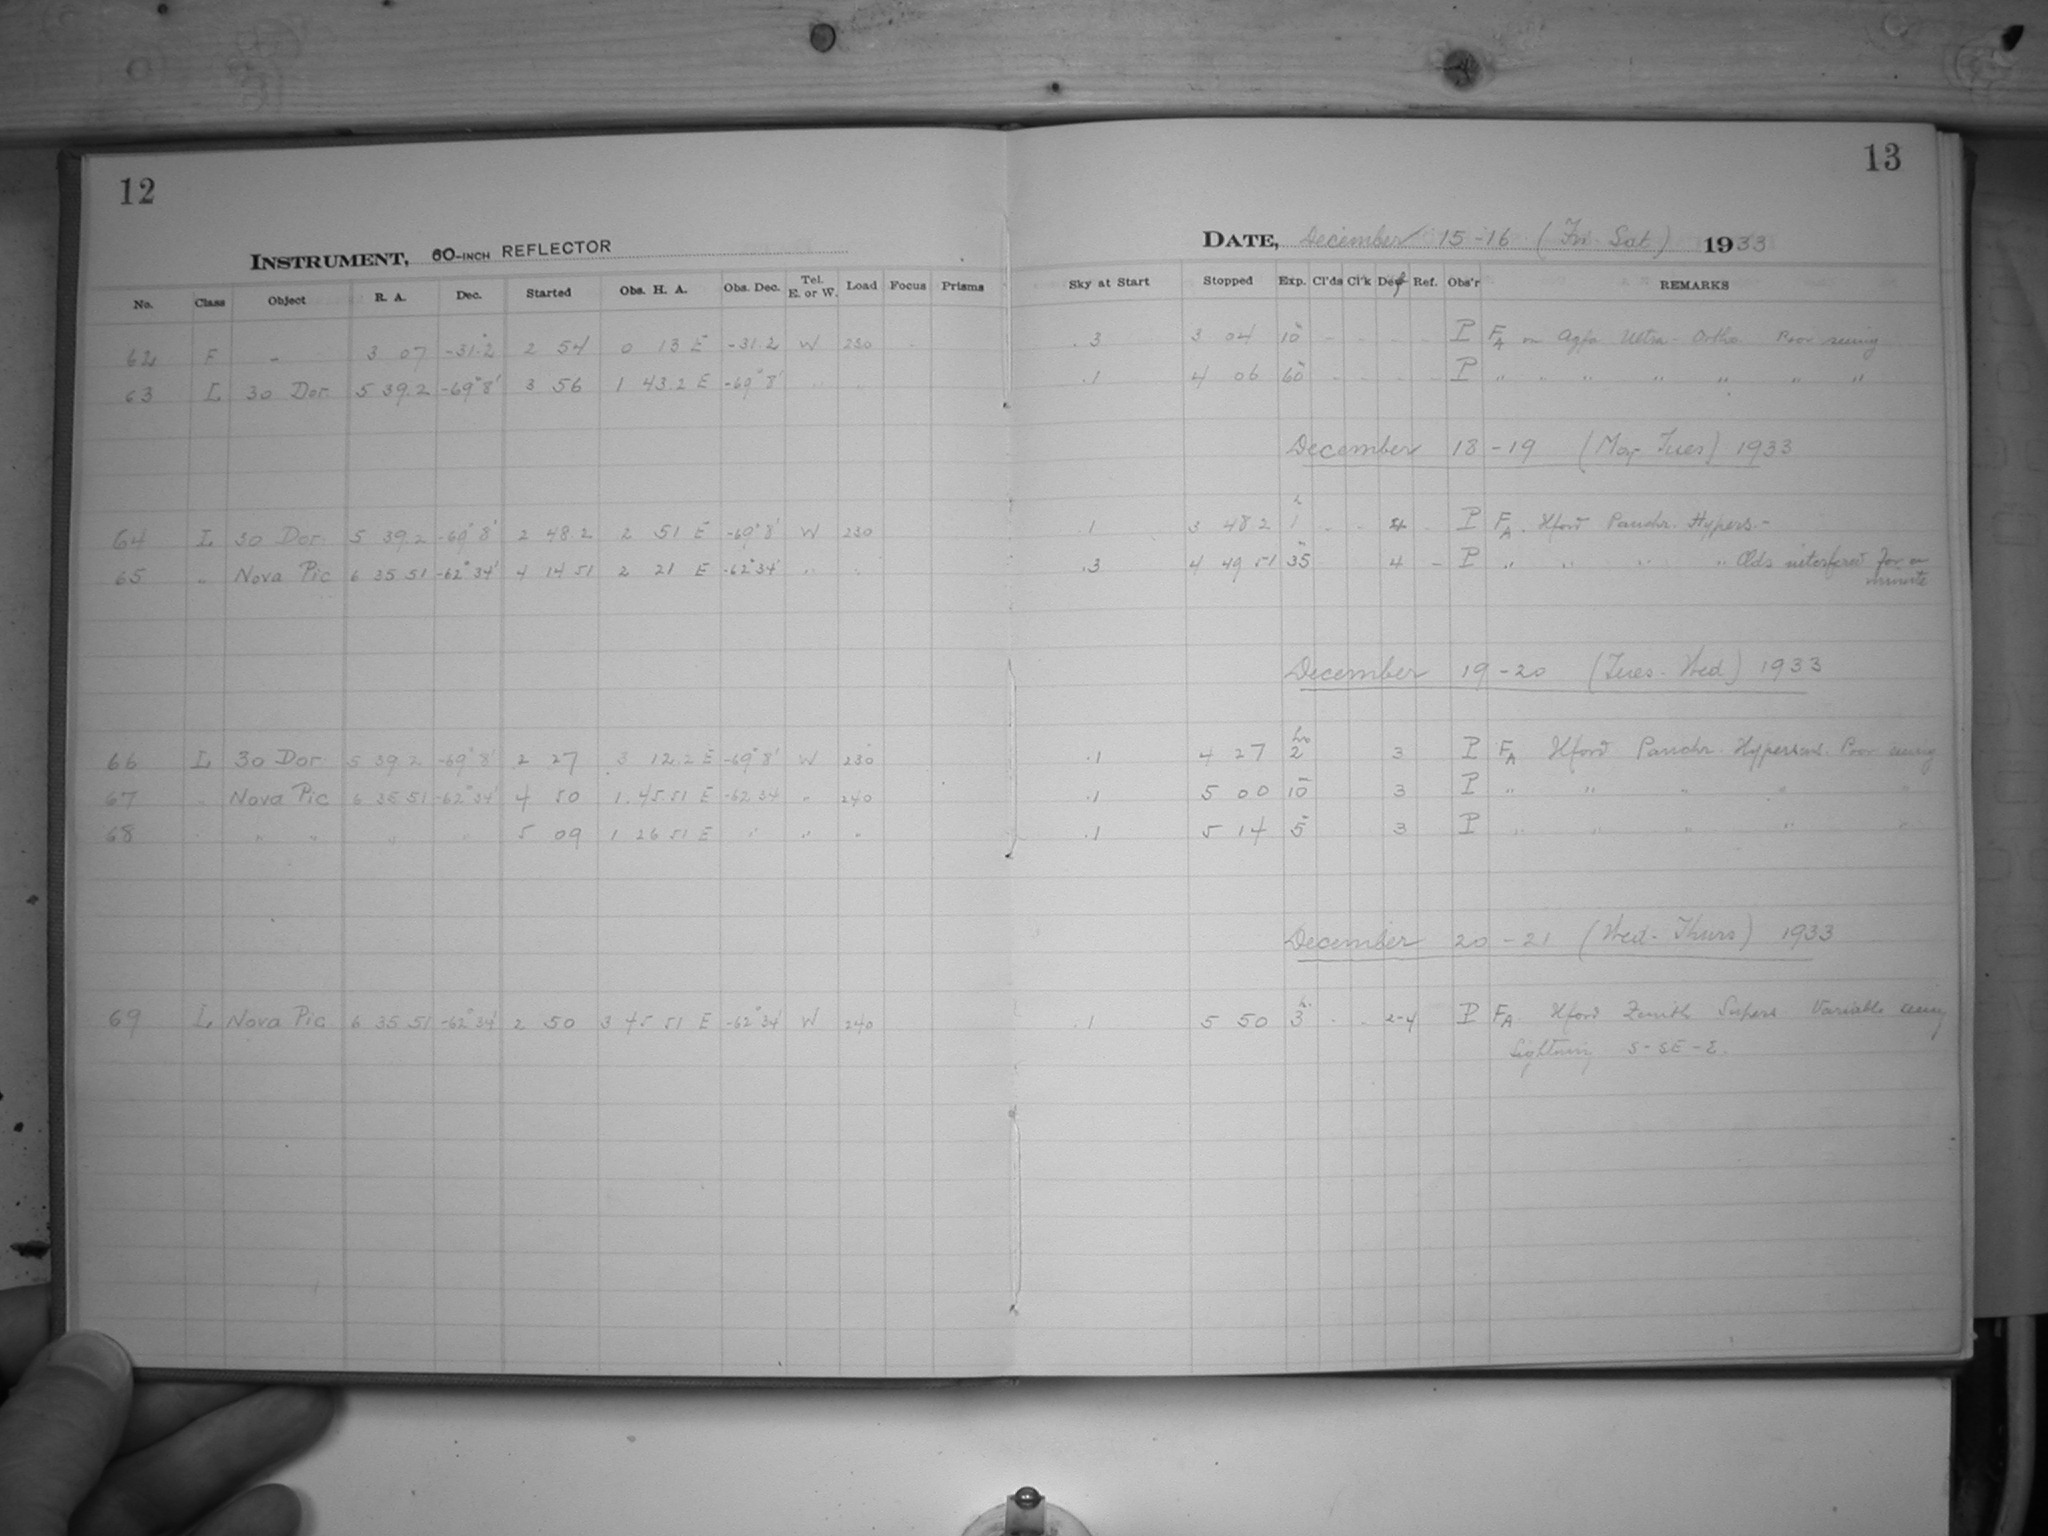 12
INSTRUMENT, 60-INCH REFLECTOR
No. Class Object R. A. Dec. Started Obs. H. A. Obs. Dec. Tel. E. or W. Load Focus Prisms
62 F - 3 07 -31.2 2 54 0 13 E -31.2 W 230
63 L 30 Dor. 5 39.2 -69° 8' 3 56 1 43.2 E -69° 8' " "
64 L 30 Dor. 5 39.2 -69° 8' 2 48.2 2 51 E -69° 8' W 230
65 " Nova Pic 6 35 51 -62° 34' 4 14 51 2 21 E -62° 34' " "
66 L 30 Dor. 5 39.2 -69° 8' 2 27 3 12.2 E -69° 8' W 230
67 " Nova Pic 6 35 51 -62° 34' 4 50 1 45 51 E -62 34 " 240
68 " " " " " 5 09 1 26 51 E " " "
69 L Nova Pic 6 35 51 -62° 34' 2 50 3 45 51 E -62° 34' W 240
13
DATE, December 15-16 (Fri. Sat.) 1933
Sky at Start Stopped Exp. Cl'ds Cl'k Def Ref. Obs'r REMARKS
.3 3 04 10 m - - - - P FA on Agfa Ultra-Ortho. Poor seeing
.1 4 06 60 m - - - - P " " " " " " "
December 18-19 (Mon-Tues) 1933
.1 3 48 2 1 h - - 4 - P FA. Ilford Panchr. Hypers.-
.3 4 49 51 35 m 4 - P " " " " Clds interfered for a minute
December 19-20 (Tues-Wed) 1933
.1 4 27 2 3 P FA Ilford Panchr. Hypersens. Poor seeing
.1 5 00 10 m 3 P " " " " "
.1 5 14 5 m 3 P " " " " "
December 20-21 (Wed-Thurs) 1933
.1 5 50 3 h. - - 2-4 P FA Ilford Zenith Supers Variable seeing
Lightning S-SE-E.